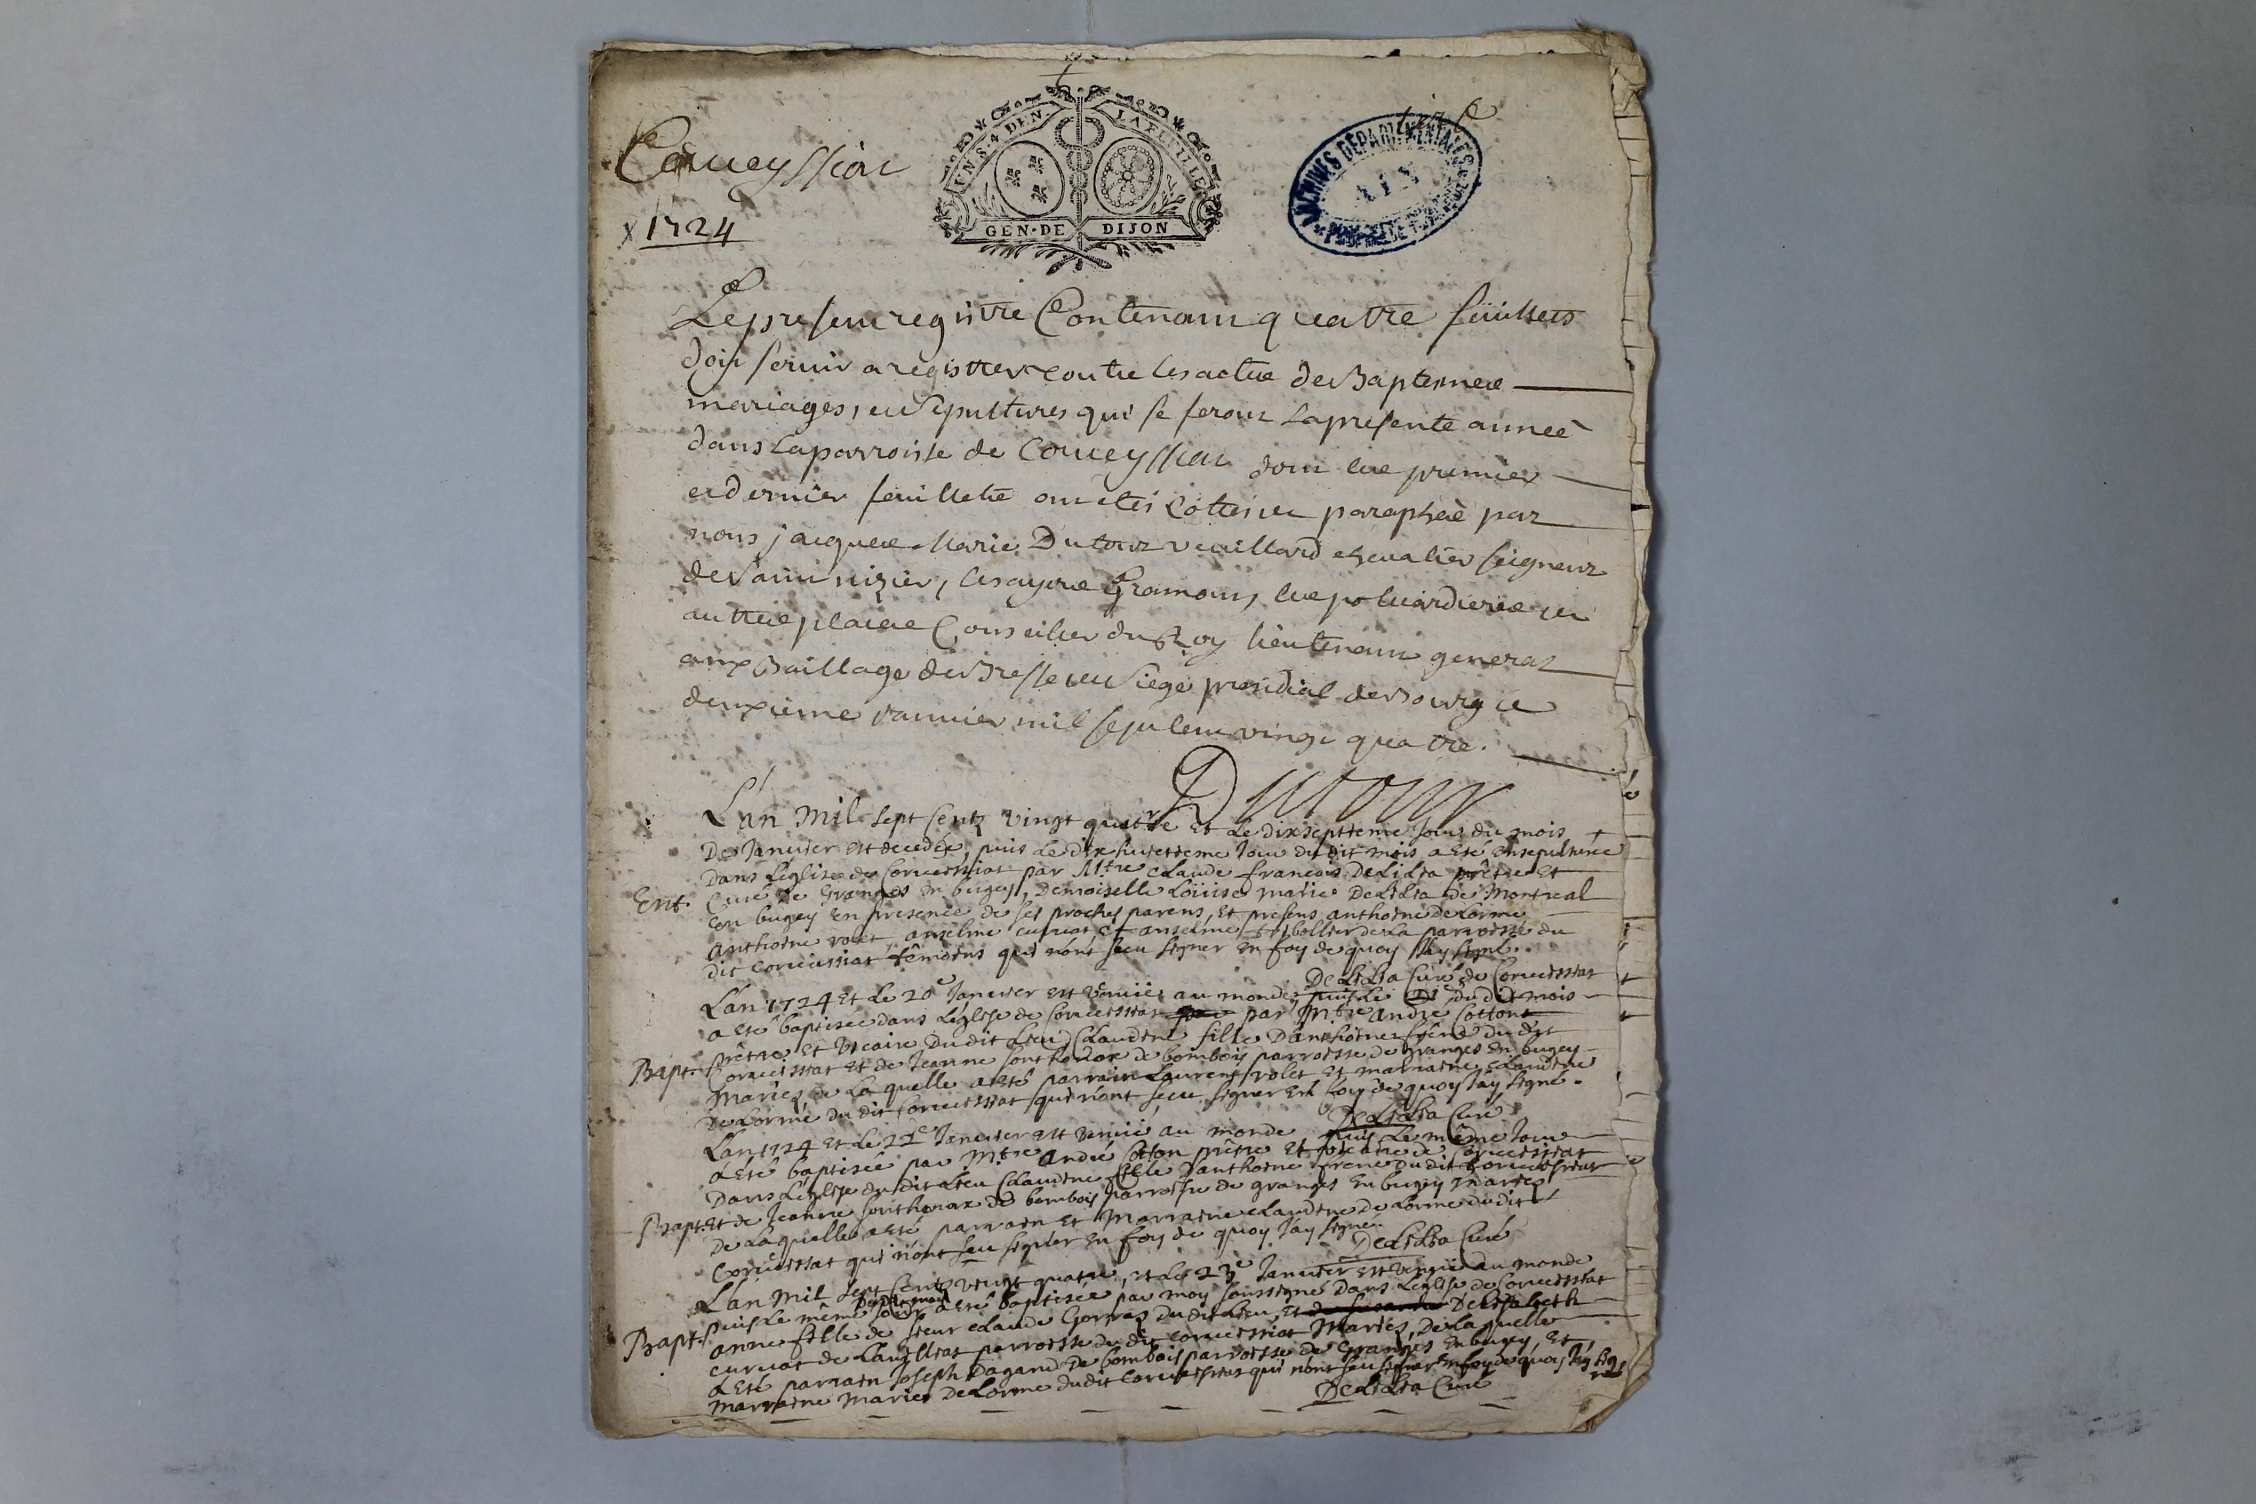 Corveyssiat
UN.S.4 DEN. LA FEUILLE
1724
GEN. DE DIJON
ARCHIVES DÉPARTEMENTALES
AIN
Le present registre Contenant quatre feuillets
doit servir a registrer toutte les actes de Baptemes
mariages, et sepultures qui se feront la presente anneé
dans la parroisse de Corveyssiat dont les premier
et dernier feuillets ont etés Cottés et paraphés par
nous jacques Marie Dutour vuillard chevalier seigneur
de Saint nizier,
autres places Conseiller du Roy lieutenant general
aux Baillage de Bresse et Siege presidial de Bourg ce
deuxieme Janvier mil sept cent vingt quatre.
Dutour
L'an mil sept Centz vingt quatre et Le dix septieme Jour du mois
De Janvier est decedée, puis Le dix huictieme Jour du dit mois a esté ensepulturée
Dans L'église de Corvessiat par Mtre claude francois De Lilia prêtre et
Ent. Curé de Granges en bugey, Demoiselle Loüise marie De Lilia de Montreal
En bugey en presence de ses proches parens, et presens anthoine de Lorme
anthoine volet, anselme curvat et anselme bollier de La parroisse du
dit corvessiat têmoins qui n'ont sceu signer en foy de quoy J'ay signé.
De Lilia Curé de Corvessiat
L'an 1724 et Le 20e Janvier est venüe au monde, puis Le du dit mois
a esté baptisée dans L'église de Corvessiat par Mtre André Cotton
prêtre et vicaire Du dit Lieu Claudine fille D'anthoine frêne du dit
Bapt. Corvessiat et de Jeanne Sonthonax de bombois parroisse de granges en bugey
Mariez, de La quelle a esté parrain Laurens volet et marraine Claudine
De Lorme du dit Corvessiat qui n'ont sceu signer en foy de quoy J'ay signé.
De Lilia Curé
L'an 1724 et Le 22e Janvier est venüe au monde puis Le même Jour
a esté baptisée par Mtre André Cotton prêtre et vicaire de Corvessiat
Dans L'église du dit Lieu Claudine fille D'anthoine frêne du dit Corvessiat
Bapt. et de Jeanne Sonthonax de bombois parroisse de granges en bugey mariez
De La quelle a esté parrain et Marraine claudine de Lorme du dit
Corvessiat qui n'ont sceu signer en foy de quoy J'ay signé.
De Lilia Curé
L'an mil sept Centz vingt quatre, et Le 23e Janvier est venüe au monde
puis Le même Jour Du dit mois a esté baptisée par moy soussigné Dans L'église de Corvessiat
Bapt. anne fille de sieur claude Gorraz du dit Lieu, et D'elisabeth
curvat de Lanillat parroisse du dit Corvessiat Mariez, De La quelle
a esté parrain Joseph Dagand De bombois parroisse de Granges en bugey, et
marraine marie De Lorme du dit Corvessiat qui n'ont sceu signer en foy de quoy J'ay signé
De Lilia Curé